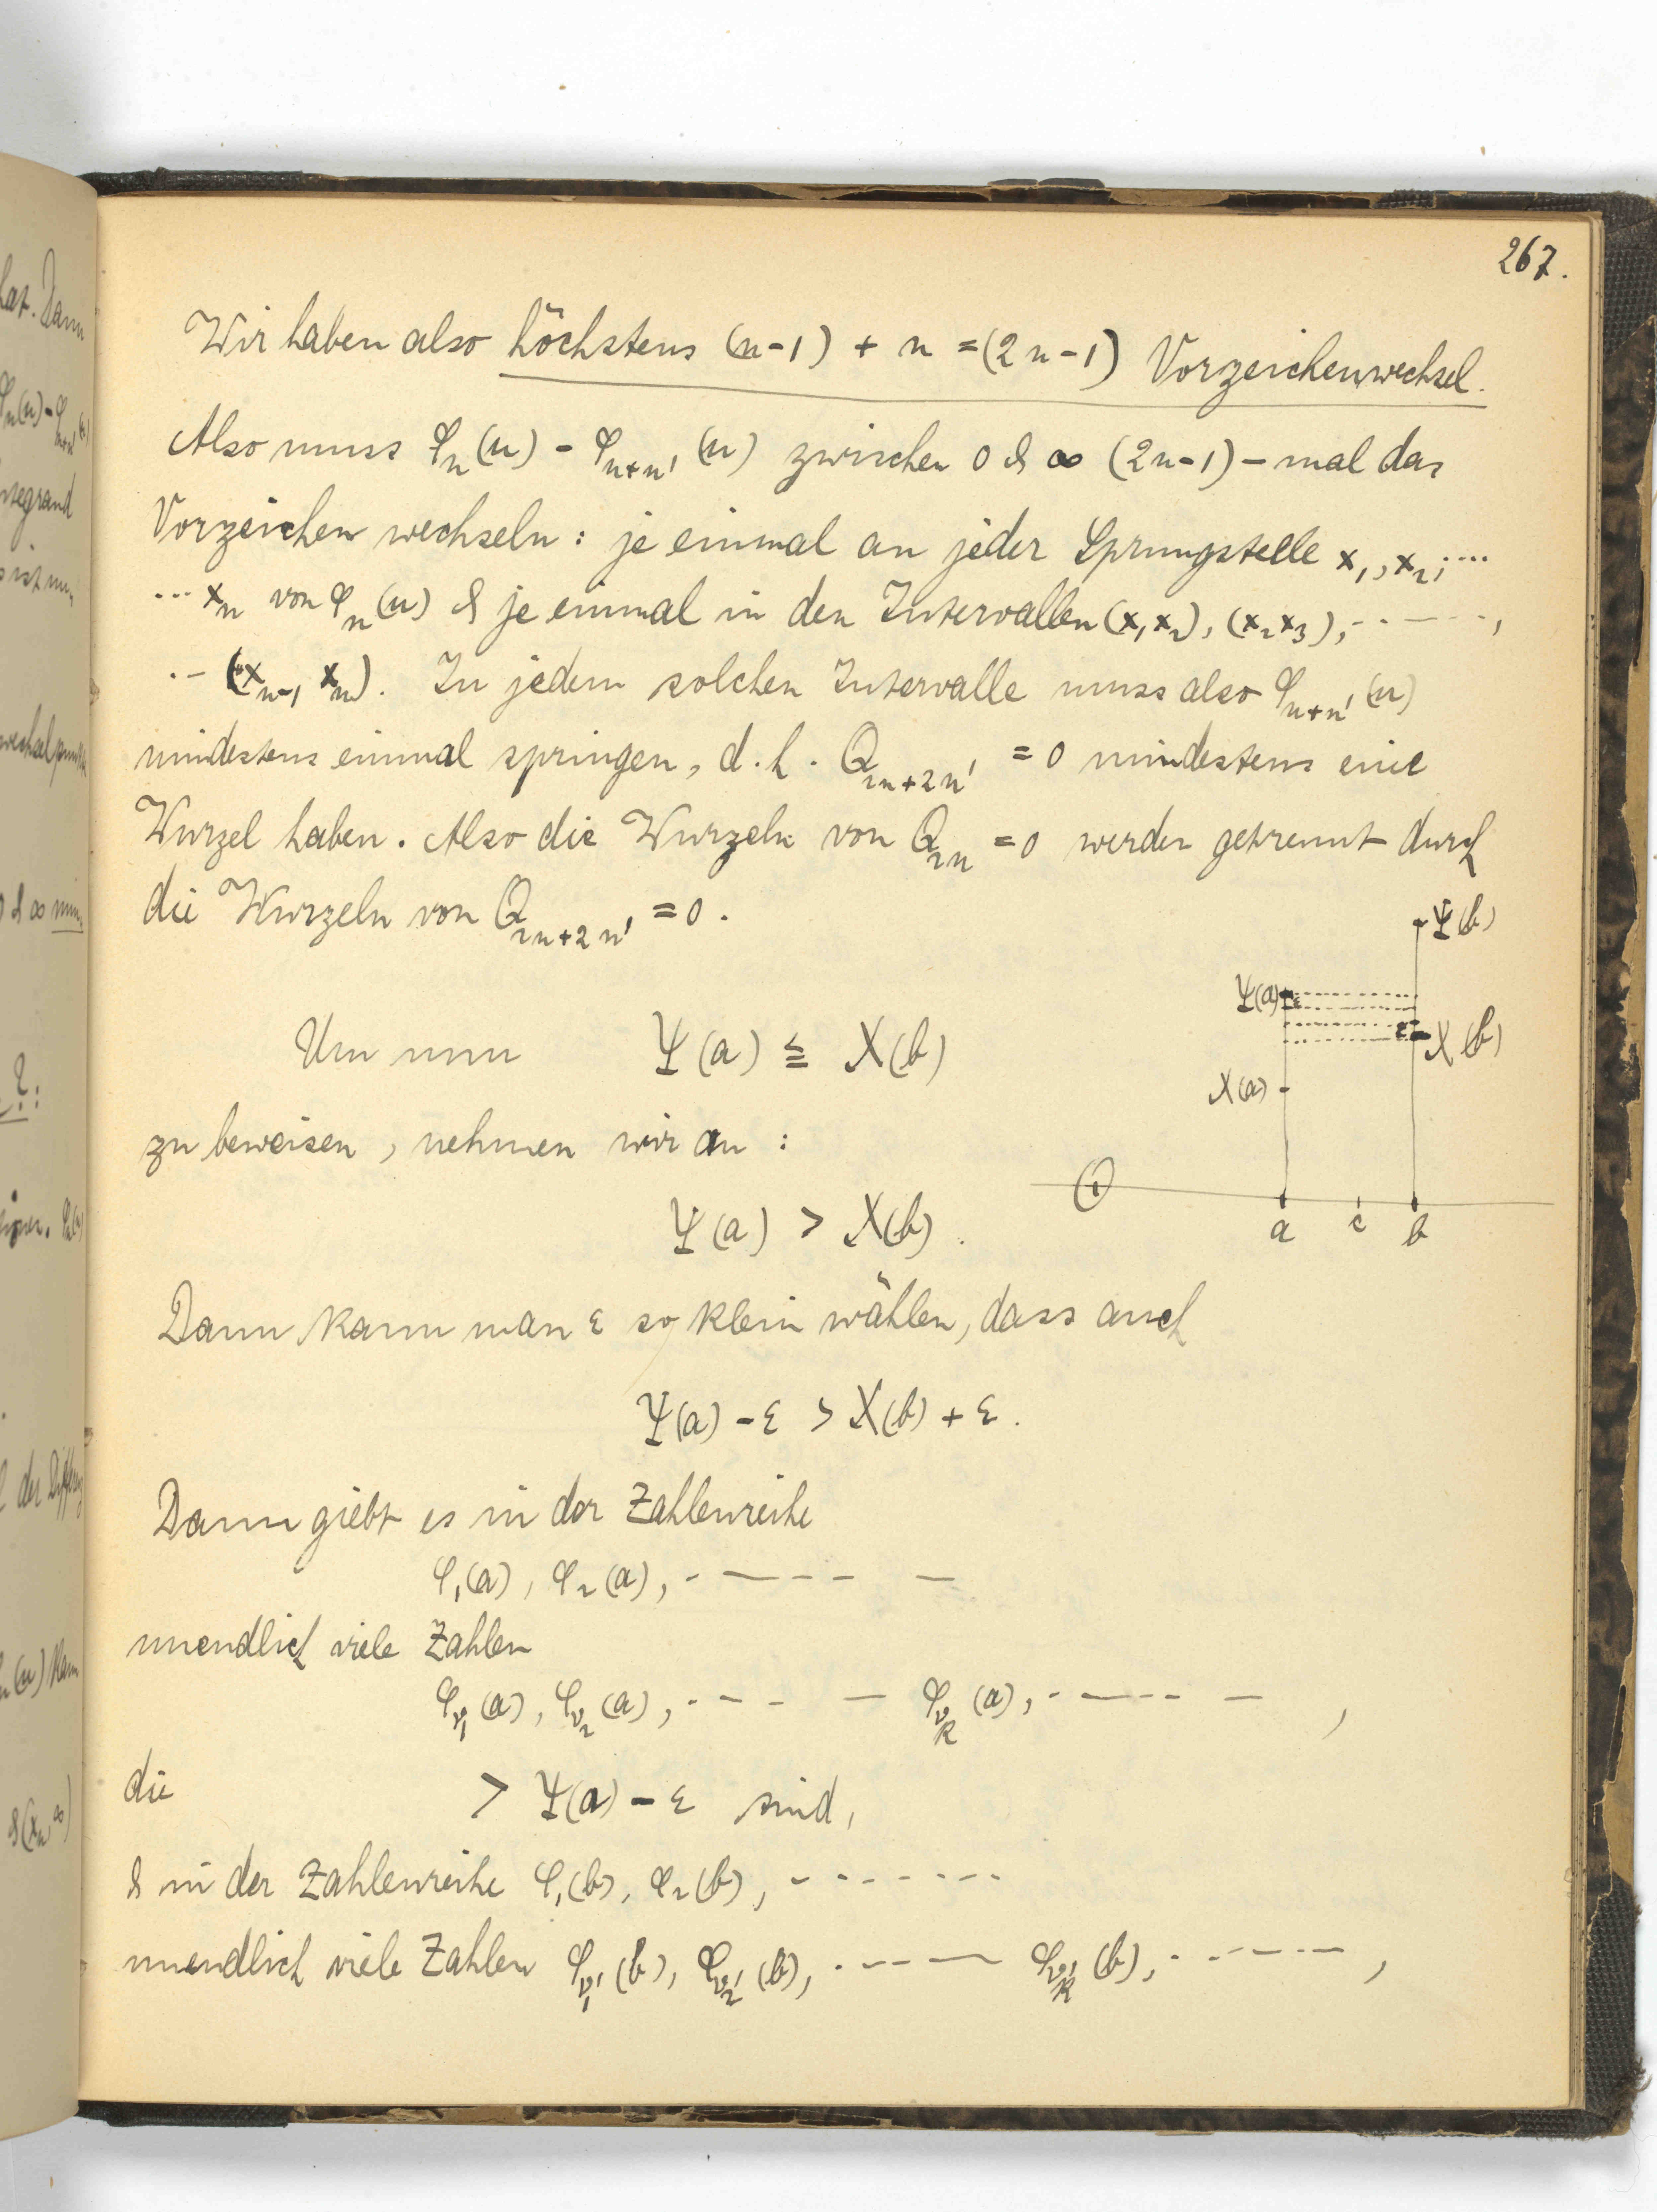 267.
Wir haben also höchstens (n-1) + n = (2n-1) Vorzeichenwechsel.
Also muss φ_n(u) - φ_{n+n'}(u) zwischen 0 & ∞ (2n-1)-mal das
Vorzeichen wechseln: je einmal an jeder Sprungstelle x_1, x_2, ....
... x_n von φ_n(u) & je einmal in den Intervallen (x_1 x_2), (x_2 x_3), - - - - - -,
.- (x_{n-1}, x_n). In jedem solchen Intervalle muss also φ_{n+n'}(u)
mindestens einmal springen, d.h. Q_{2n+2n'} = 0 mindestens eine
Wurzel haben. Also die Wurzeln von Q_{2n} = 0 werden getrennt durch
die Wurzeln von Q_{2n+2n'} = 0.
Ψ(b)
Ψ(a) ε
ε X(b)
X(a)
a c b
Um nun Ψ(a) ≦ X(b)
zu beweisen, nehmen wir an:
Ψ(a) > X(b).
Dann kann man ε so klein wählen, dass auch
Ψ(a) - ε > X(b) + ε.
Dann giebt es in der Zahlenreihe
φ_1(a), φ_2(a), - - - - - -
unendlich viele Zahlen
φ_{ν_1}(a), φ_{ν_2}(a), - - - - φ_{ν_k}(a), - - - - - ,
die > Ψ(a) - ε sind,
& in der Zahlenreihe φ_1(b), φ_2(b), - - - - - - -
unendlich viele Zahlen φ_{ν_1'}(b), φ_{ν_2'}(b), - - - - φ_{ν_k'}(b), - - - - - ,